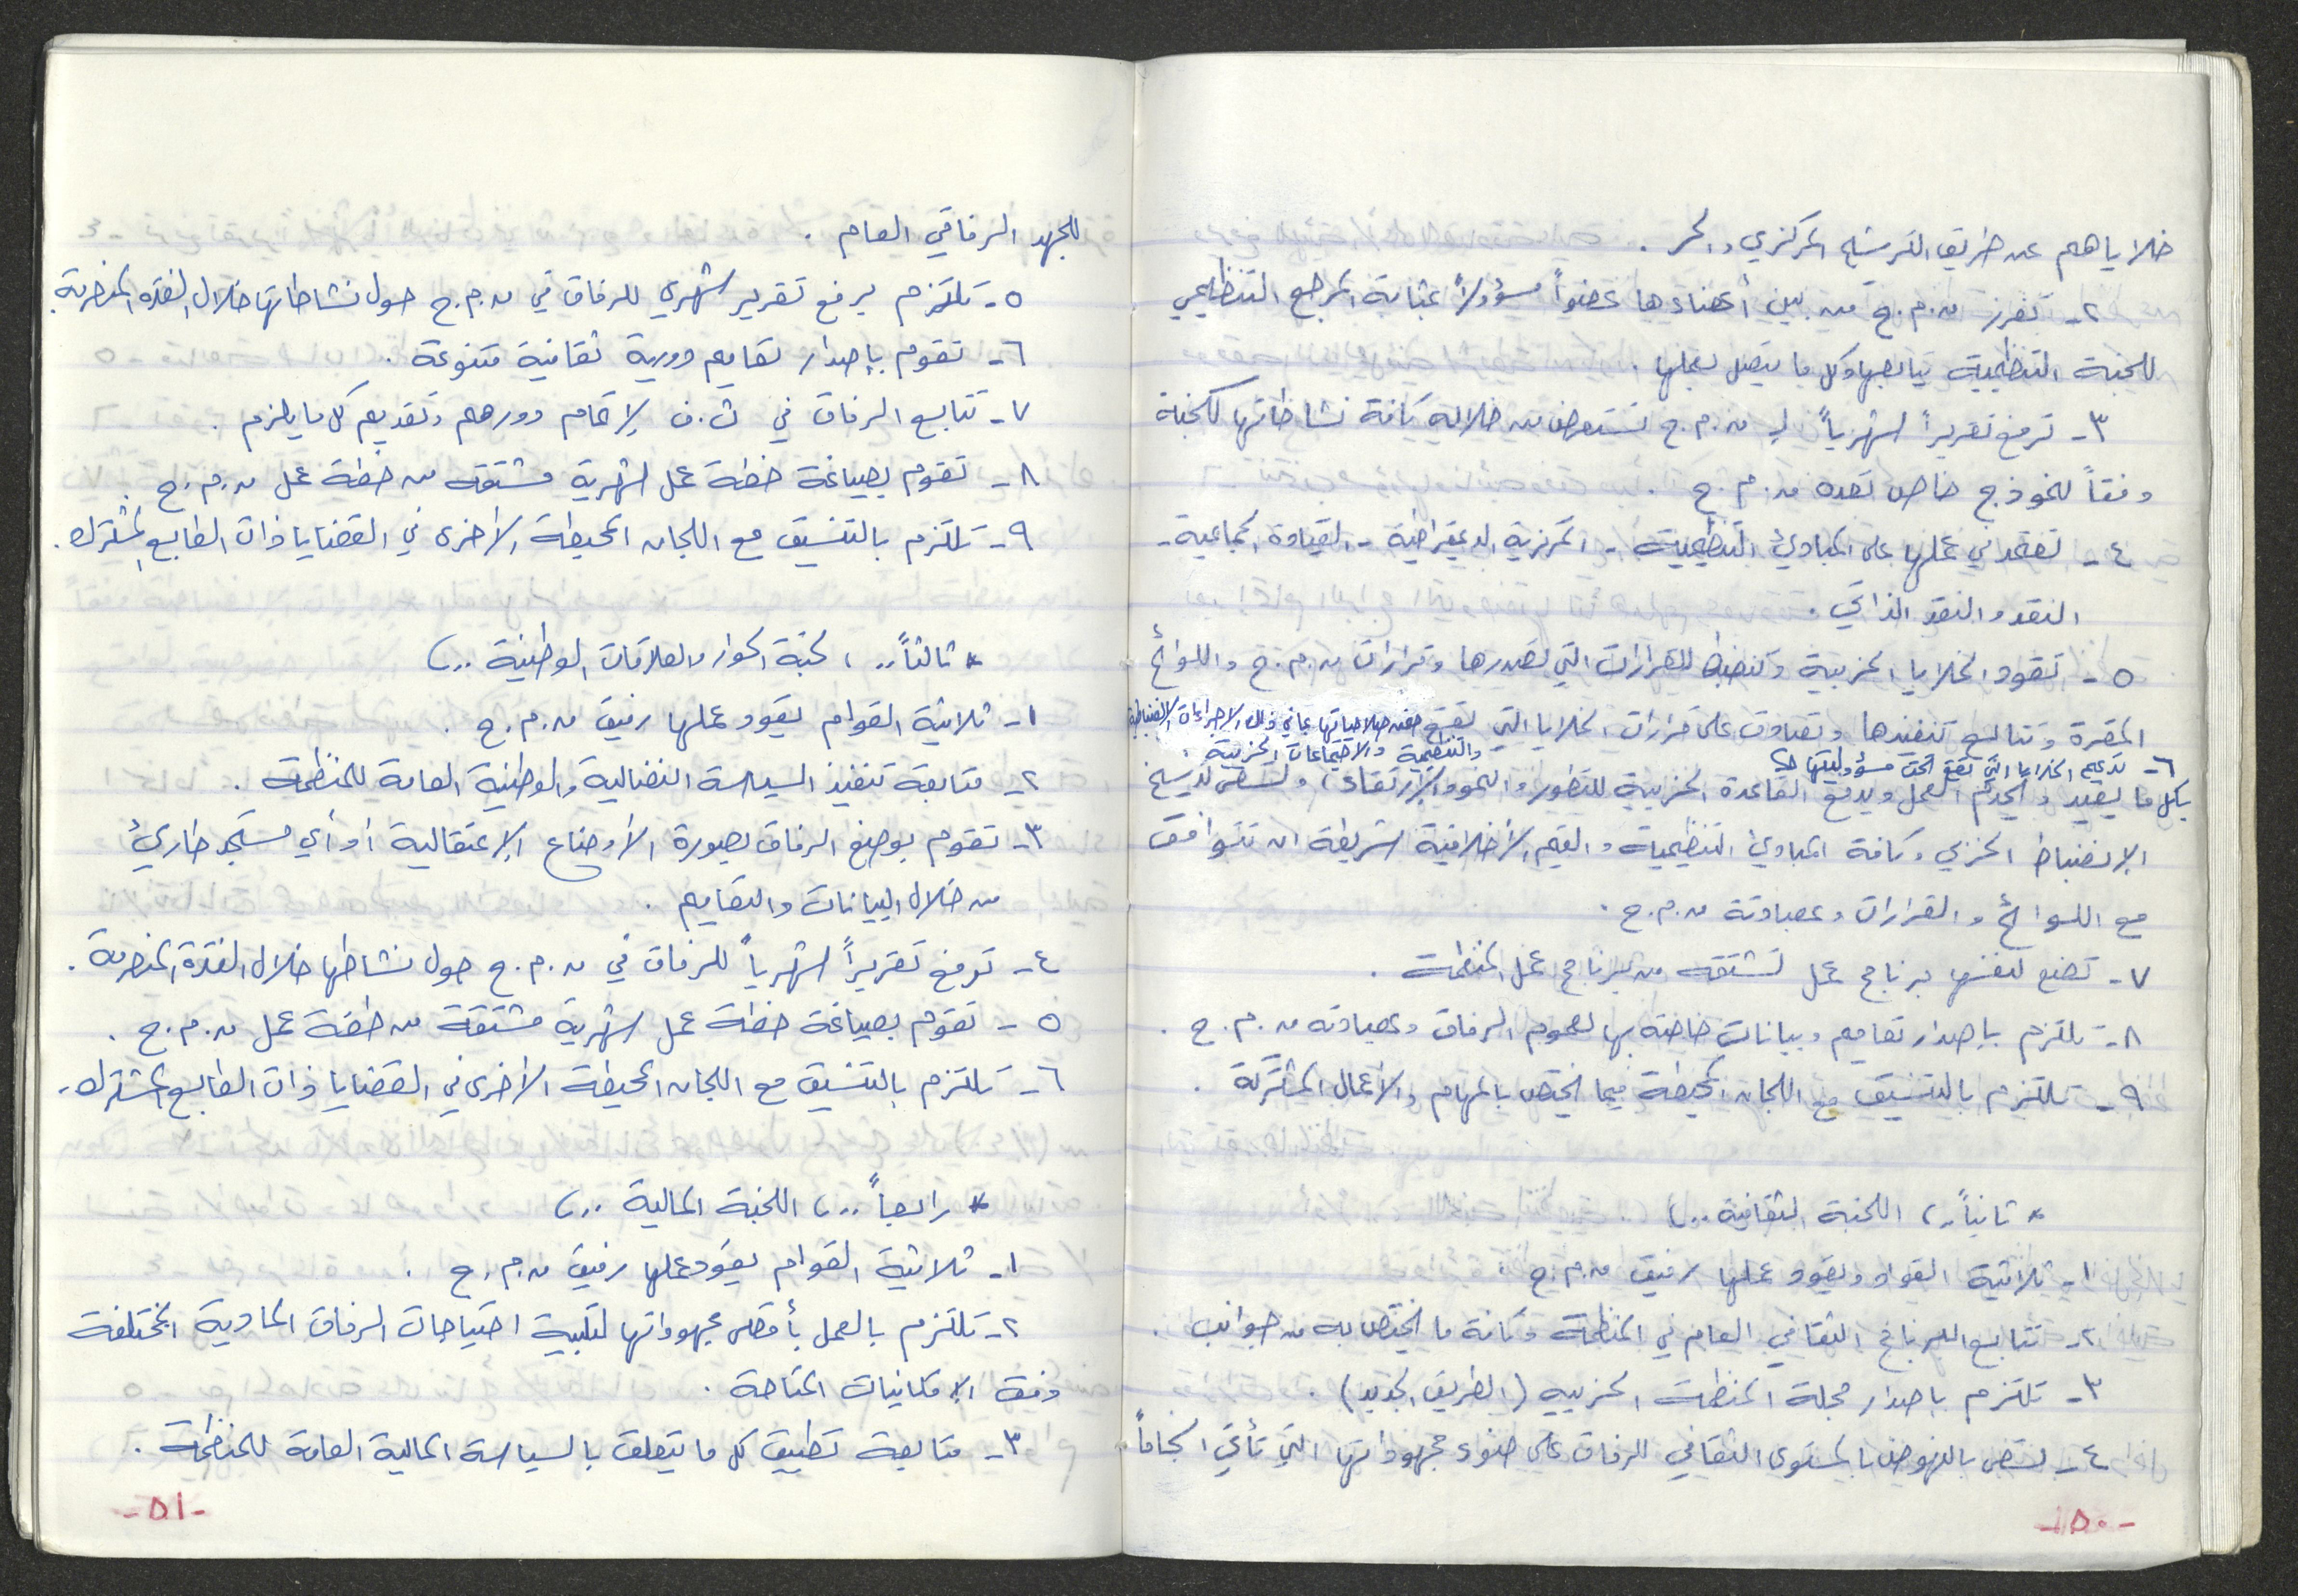 خلاياهم عن طريق الترشيح المركزي والحر .
٢- تفرز م.م.ح من بين أعضاءها عضواً مسؤولاً بمثابة المرجع التنظيمي
للجنة التنظيمية يتابعها وكل ما يتصل بعملها .
٣- ترفع تقريراً شهرياً لـ م.م.ح تستعرض من خلاله كافة نشاطاتها كلجنة
وفقاً لنموذج خاص تعده م.م.ح .
٤- تعتمد في عملها على المبادئ التنظيمية - المركزية الديمقراطية - القيادة الجماعية -
النقد والنقد الذاتي .
٥- تقود الخلايا الحزبية وتنضبط للقرارات التي تصدرها وقرارات م.م.ح واللوائح
المقرة وتتابع تنفيذها وتصادق على قرارات الخلايا التي تقع ضمن صلاحياتها بما في ذلك الإجراءات الانضباطية
والتنظيمية والاجتماعات الحزبية .
٦- تدعيم الخلايا التي تقع تحت مسؤوليتها
بكل ما يفيد ويخدم العمل ويدفع القاعدة الحزبية للتطور والنمو والارتقاء، وتسعى لترسيخ
الإنضباط الحزبي وكافة المبادئ التنظيمية والقيم الأخلاقية شريطة ان تتوافق
مع اللوائح والقرارات وبمصادقة م.م.ح .
٧- تضع لنفسها برنامج عمل تشتقه من برنامج عمل المنظمة .
٨- تلتزم بإصدار تعاميم وبيانات خاصة بها لعموم الرفاق وبمصادقة م.م.ح .
٩- تلتزم بالتنسيق مع اللجان المحيطة فيما يختص بالمهام والأعمال المشتركة .
* ثانياً .. ، اللجنة الثقافية ..)
١- ثلاثية القوام ويقود عملها رفيق م.م.ح .
٢- تتابع البرنامج الثقافي العام في المنظمة وكافة ما يختص به من جوانب .
٣- تلتزم بإصدار مجلة المنظمة الحزبية (الطريق الجديد) .
٤- تسعى بالنهوض بالمستوى الثقافي للرفاق على ضوء مجهوداتها التي تأتي انجاماً
- ٥٠ -
للجهد الرفاقي العام .
٥- تلتزم برفع تقرير شهري للرفاق في م.م.ح حول نشاطاتها خلال الفترة المنصرمة .
٦- تقوم بإصدار تعاميم دورية ثقافية متنوعة .
٧- تتابع الرفاق في ث.ف لإتمام دورهم وتقديم كل ما يلزم .
٨- تقوم بصياغة خطة عمل شهرية مشتقة من خطة عمل م.م.ح .
٩- تلتزم بالتنسيق مع اللجان المحيطة الأخرى في القضايا ذات الطابع المشترك .
* ثالثاً .. ، لجنة الحوار والعلاقات الوطنية ..)
١- ثلاثية القوام يقود عملها رفيق م.م.ح .
٢- متابعة تنفيذ السياسة النضالية والوطنية العامة للمنظمة .
٣- تقوم بوضع الرفاق بصورة الأوضاع الإعتقالية أو أي مستجد طارئ
من خلال البيانات والتعاميم .
٤- ترفع تقريراً شهرياً للرفاق في م.م.ح حول نشاطها خلال الفترة المنصرمة .
٥- تقوم بصياغة خطة عمل شهرية مشتقة من خطة عمل م.م.ح .
٦- تلتزم بالتنسيق مع اللجان المحيطة الأخرى في القضايا ذات الطابع المشترك .
* رابعاً .. ، اللجنة المالية ..)
١- ثلاثية القوام يقود عملها رفيق م.م.ح .
٢- تلتزم بالعمل بأقصى مجهوداتها لتلبية احتياجات الرفاق المادية المختلفة
وفق الإمكانيات المتاحة .
٣- متابعة تطبيق كل ما يتعلق بالسياسة المالية العامة للمنظمة .
- ٥١ -